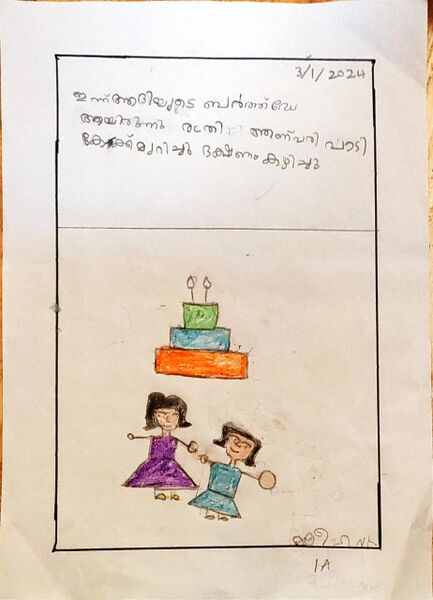 3/1/2024
ഇന്ന് ആദിയുടെ ബർത്ത്ഡേ
ആയിരുന്നു പാടി
കേക്ക് മുറിച്ചു ഭക്ഷണം കഴിച്ചു
1A